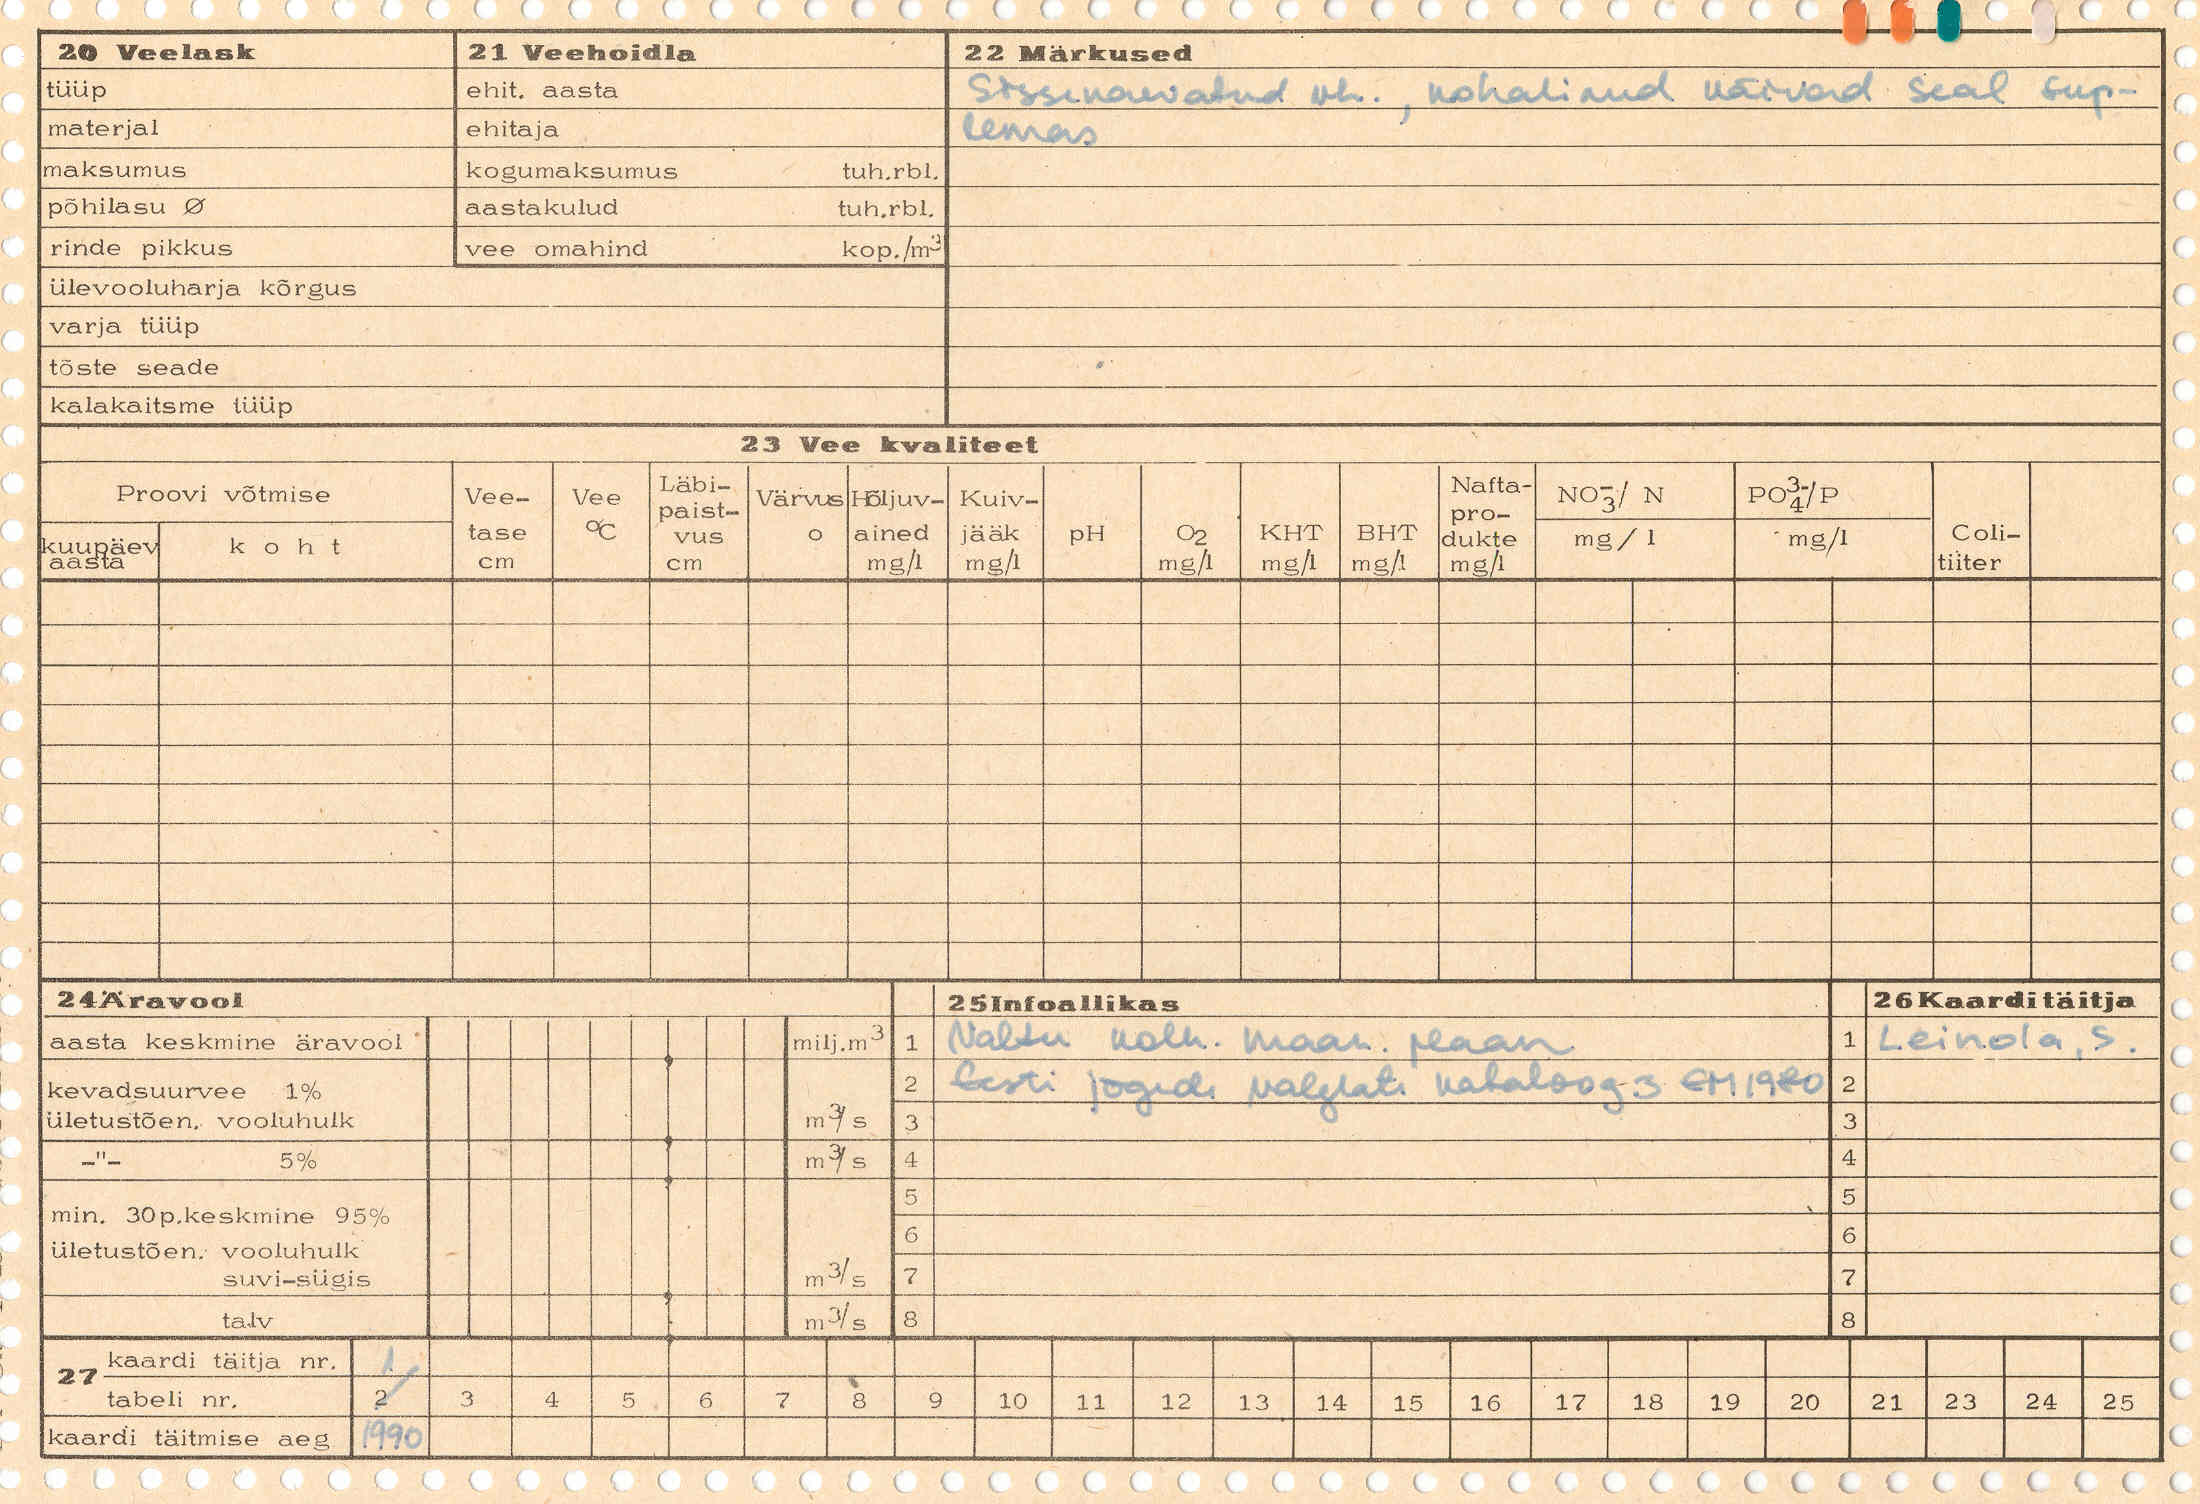 20 Veelask
tüüp
materjal
maksumus
põhilasu Ø
rinde pikkus
ülevooluharja kõrgus
varja tüüp
tõste seade
kalakaitsme tüüp
21 Veehoidla
ehit. aasta
ehitaja
kogumaksumus tuh.rbl.
aastakulud tuh.rbl.
vee omahind kop./m³
22 Märkused
Sissekaevatud vh., kohalikud käivad seal sup-
lemas
23 Vee kvaliteet
Proovi võtmise
kuupäev aasta
koht
Vee-
tase
cm
Vee
°C
Läbi-
paist-
vus
cm
Värvus
o
Hõljuv-
ained
mg/l
Kuiv-
jääk
mg/l
pH
O₂
mg/l
KHT
mg/l
BHT
mg/l
Nafta-
pro-
dukte
mg/l
NO₃⁻/ N
mg/l
PO₄³⁻/P
mg/l
Coli-
tiiter
24 Äravool
aasta keskmine äravool milj.m³
kevadsuurvee 1%
ületustõen. vooluhulk m³/s
-"- 5% m³/s
min. 30p.keskmine 95%
ületustõen. vooluhulk
suvi-sügis m³/s
talv m³/s
25 Infoallikas
1 Kaltu kolh. maak. plaan
2 Eesti jogede valglate kataloog 3 EM 1980
3
4
5
6
7
8
26 Kaardi täitja
1 Leinola, S.
2
3
4
5
6
7
8
27 kaardi täitja nr. 1
tabeli nr. 2 3 4 5 6 7 8 9 10 11 12 13 14 15 16 17 18 19 20 21 23 24 25
kaardi täitmise aeg 1990